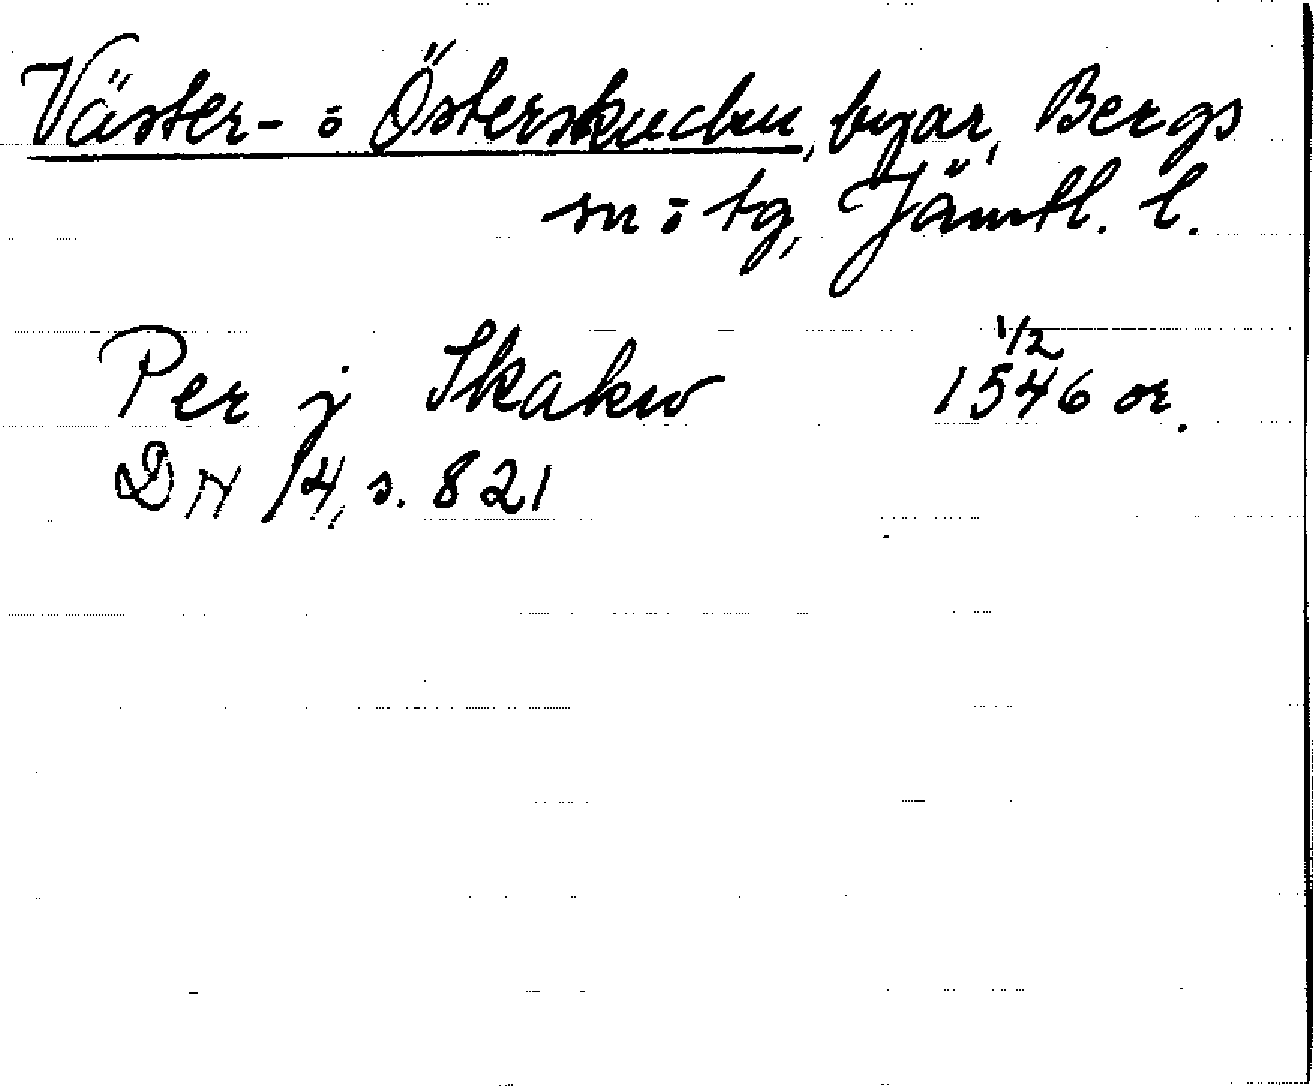 Väster- o Österskucku, byar, Bergs
sn o tg, Jämtl. l.
Per j Skakw 1/2 1546 or.
DN 14, s. 821